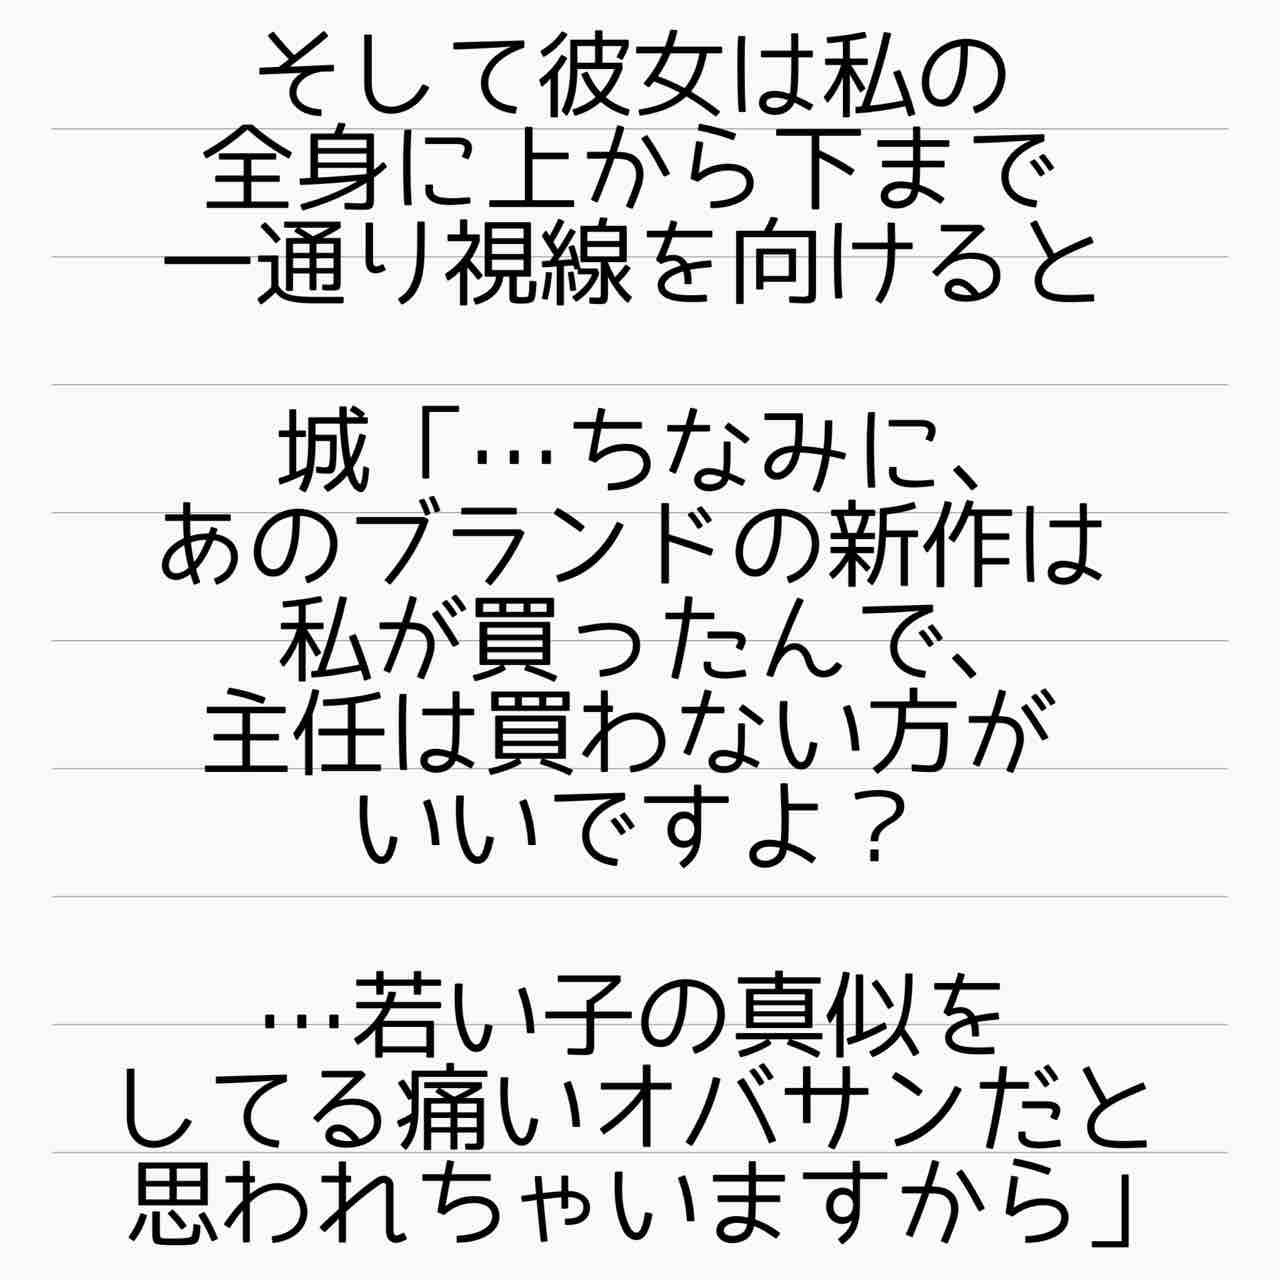 そして彼女は私の
全身に上から下まで
一通り視線を向けると
城「…ちなみに、
あのブランドの新作は
私が買ったんで、
主任は買わない方が
いいですよ？
…若い子の真似を
してる痛いオバサンだと
思われちゃいますから」